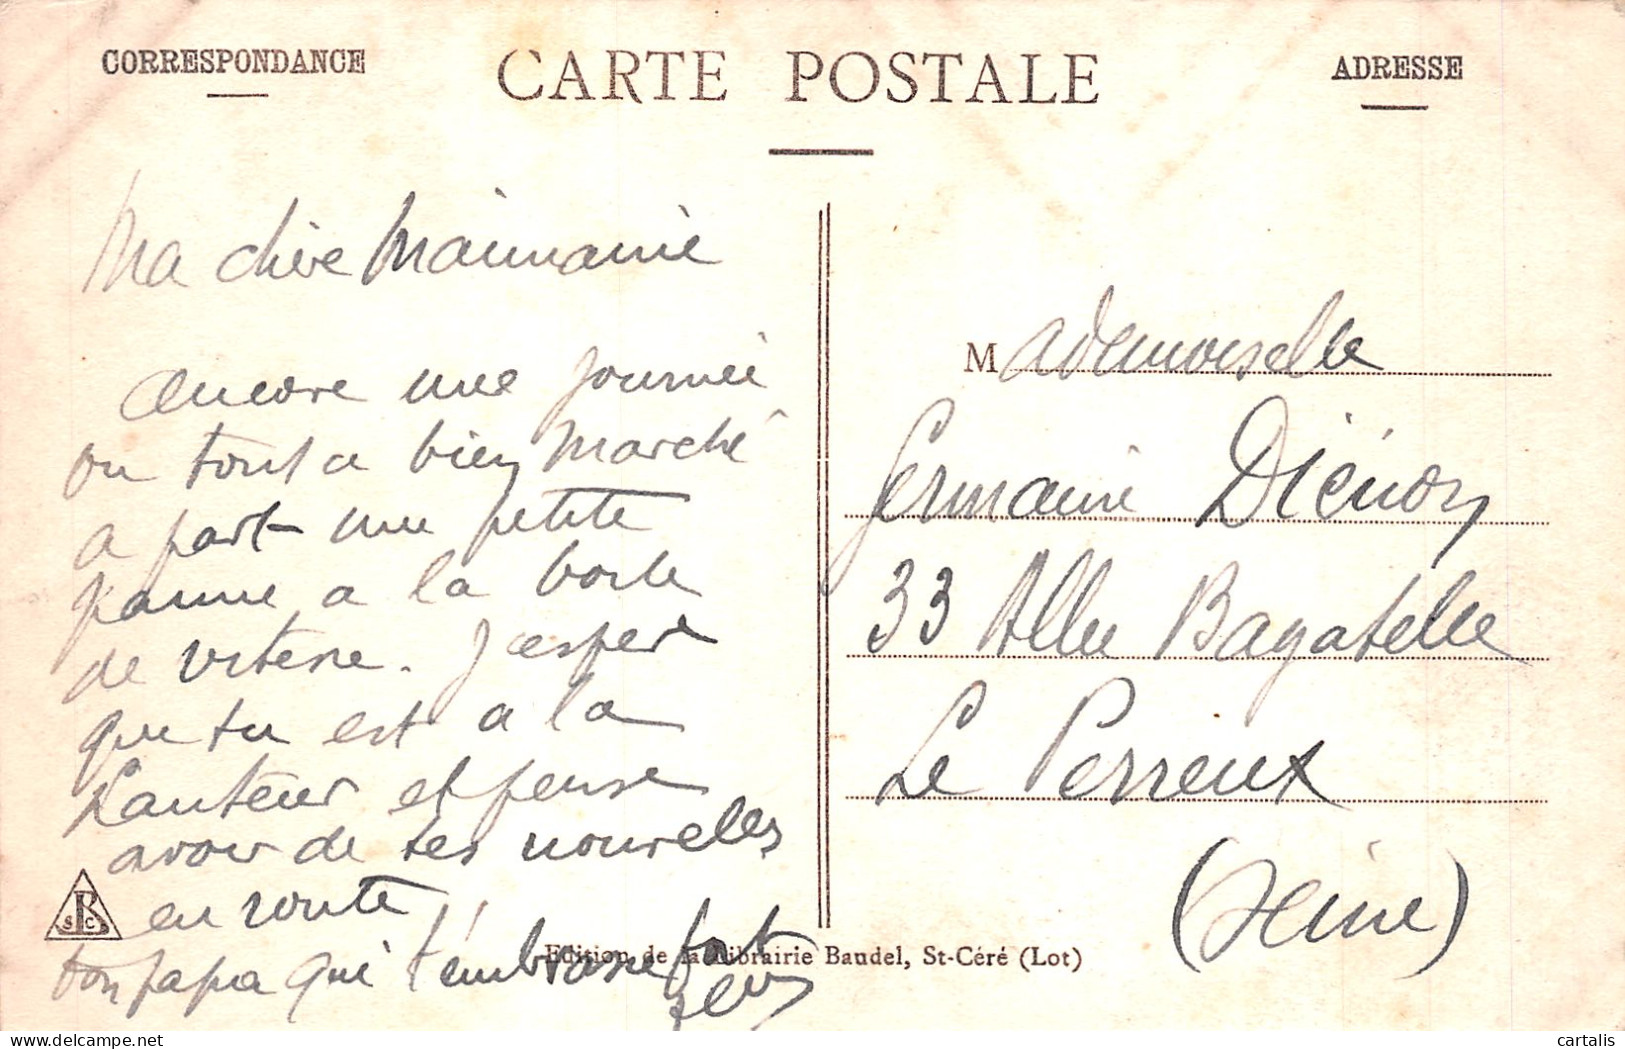 CORRESPONDANCE
CARTE POSTALE
ADRESSE
Ma chère Maimaine
encore une journée
ou tout a bien marché
a part une petite
panne a la boite
de vitesse. J'espere
que tu est a la
hauteur et pense
avoir de tes nouvelles
en route
ton papa qui t'embrasse fort
Mademoiselle
Germaine Diénon
33 Allée Bagatelle
Le Perreux
(Seine)
SBC
Edition de la Librairie Baudel, St-Céré (Lot)
cartalis